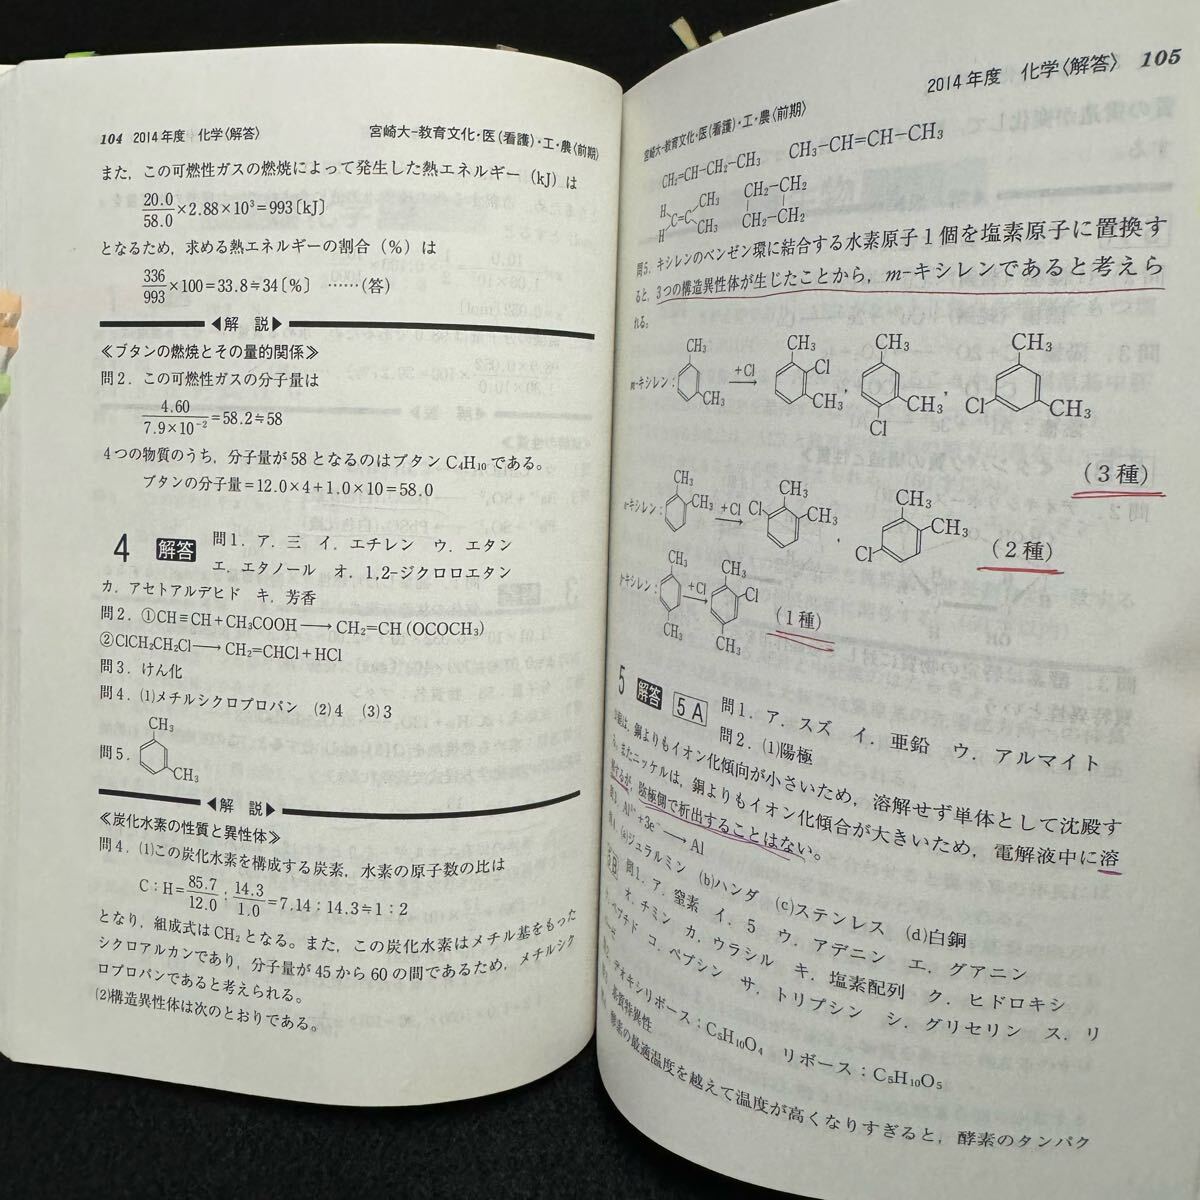 104 2014年度 化学〈解答〉 宮崎大-教育文化・医(看護)・工・農〈前期〉
また，この可燃性ガスの燃焼によって発生した熱エネルギー（kJ）は
20.0/58.0×2.88×10³=993〔kJ〕
となるため，求める熱エネルギーの割合（%）は
336/993×100=33.8≒34〔%〕 ……(答)
◀解 説▶
≪ブタンの燃焼とその量的関係≫
問2．この可燃性ガスの分子量は
4.60/7.9×10⁻²=58.2≒58
4つの物質のうち，分子量が58となるのはブタンC₄H₁₀である。
ブタンの分子量=12.0×4+1.0×10=58.0
4 解答 問1．ア．三 イ．エチレン ウ．エタン
エ．エタノール オ．1,2-ジクロロエタン
カ．アセトアルデヒド キ．芳香
問2．①CH≡CH+CH₃COOH⟶CH₂=CH(OCOCH₃)
②ClCH₂CH₂Cl⟶CH₂=CHCl+HCl
問3．けん化
問4．(1)メチルシクロプロパン (2)4 (3)3
問5．
CH₃
CH₃
◀解 説▶
≪炭化水素の性質と異性体≫
問4．(1)この炭化水素を構成する炭素，水素の原子数の比は
C：H=85.7/12.0：14.3/1.0=7.14：14.3≒1：2
となり，組成式はCH₂となる。また，この炭化水素はメチル基をもった
シクロアルカンであり，分子量が45から60の間であるため，メチルシク
ロプロパンであると考えられる。
(2)構造異性体は次のとおりである。
2014年度 化学〈解答〉 105
宮崎大-教育文化・医(看護)・工・農〈前期〉
CH₂=CH-CH₂-CH₃ CH₃-CH=CH-CH₃
H H C=C CH₃ CH₃
CH₂-CH₂
CH₂-CH₂
問5．キシレンのベンゼン環に結合する水素原子1個を塩素原子に置換す
ると，3つの構造異性体が生じたことから，m-キシレンであると考えら
れる。
m-キシレン： CH₃ CH₃ +Cl CH₃ Cl CH₃ ， CH₃ CH₃ Cl ， CH₃ Cl CH₃
(3種)
o-キシレン： CH₃ CH₃ +Cl Cl CH₃ CH₃ ， CH₃ CH₃ Cl
(2種)
p-キシレン： CH₃ CH₃ +Cl CH₃ Cl CH₃
(1種)
5 解答 5A 問1．ア．スズ イ．亜鉛 ウ．アルマイト
問2．(1)陽極
は，銅よりもイオン化傾向が小さいため，溶解せず単体として沈殿す
る。またニッケルは，銅よりもイオン化傾合が大きいため，電解液中に溶
解するが，陰極側で析出することはない。
問3．Al³⁺+3e⁻⟶Al
問4．(a)ジュラルミン (b)ハンダ (c)ステンレス (d)白銅
5B 問1．ア．窒素 イ．5 ウ．アデニン エ．グアニン
オ．チミン カ．ウラシル キ．塩素配列 ク．ヒドロキシ
ケ．ペプチド コ．ペプシン サ．トリプシン シ．グリセリン ス．リ
デオキシリボース：C₅H₁₀O₄ リボース：C₅H₁₀O₅
基質特異性
酵素の最適温度を越えて温度が高くなりすぎると，酵素のタンパク